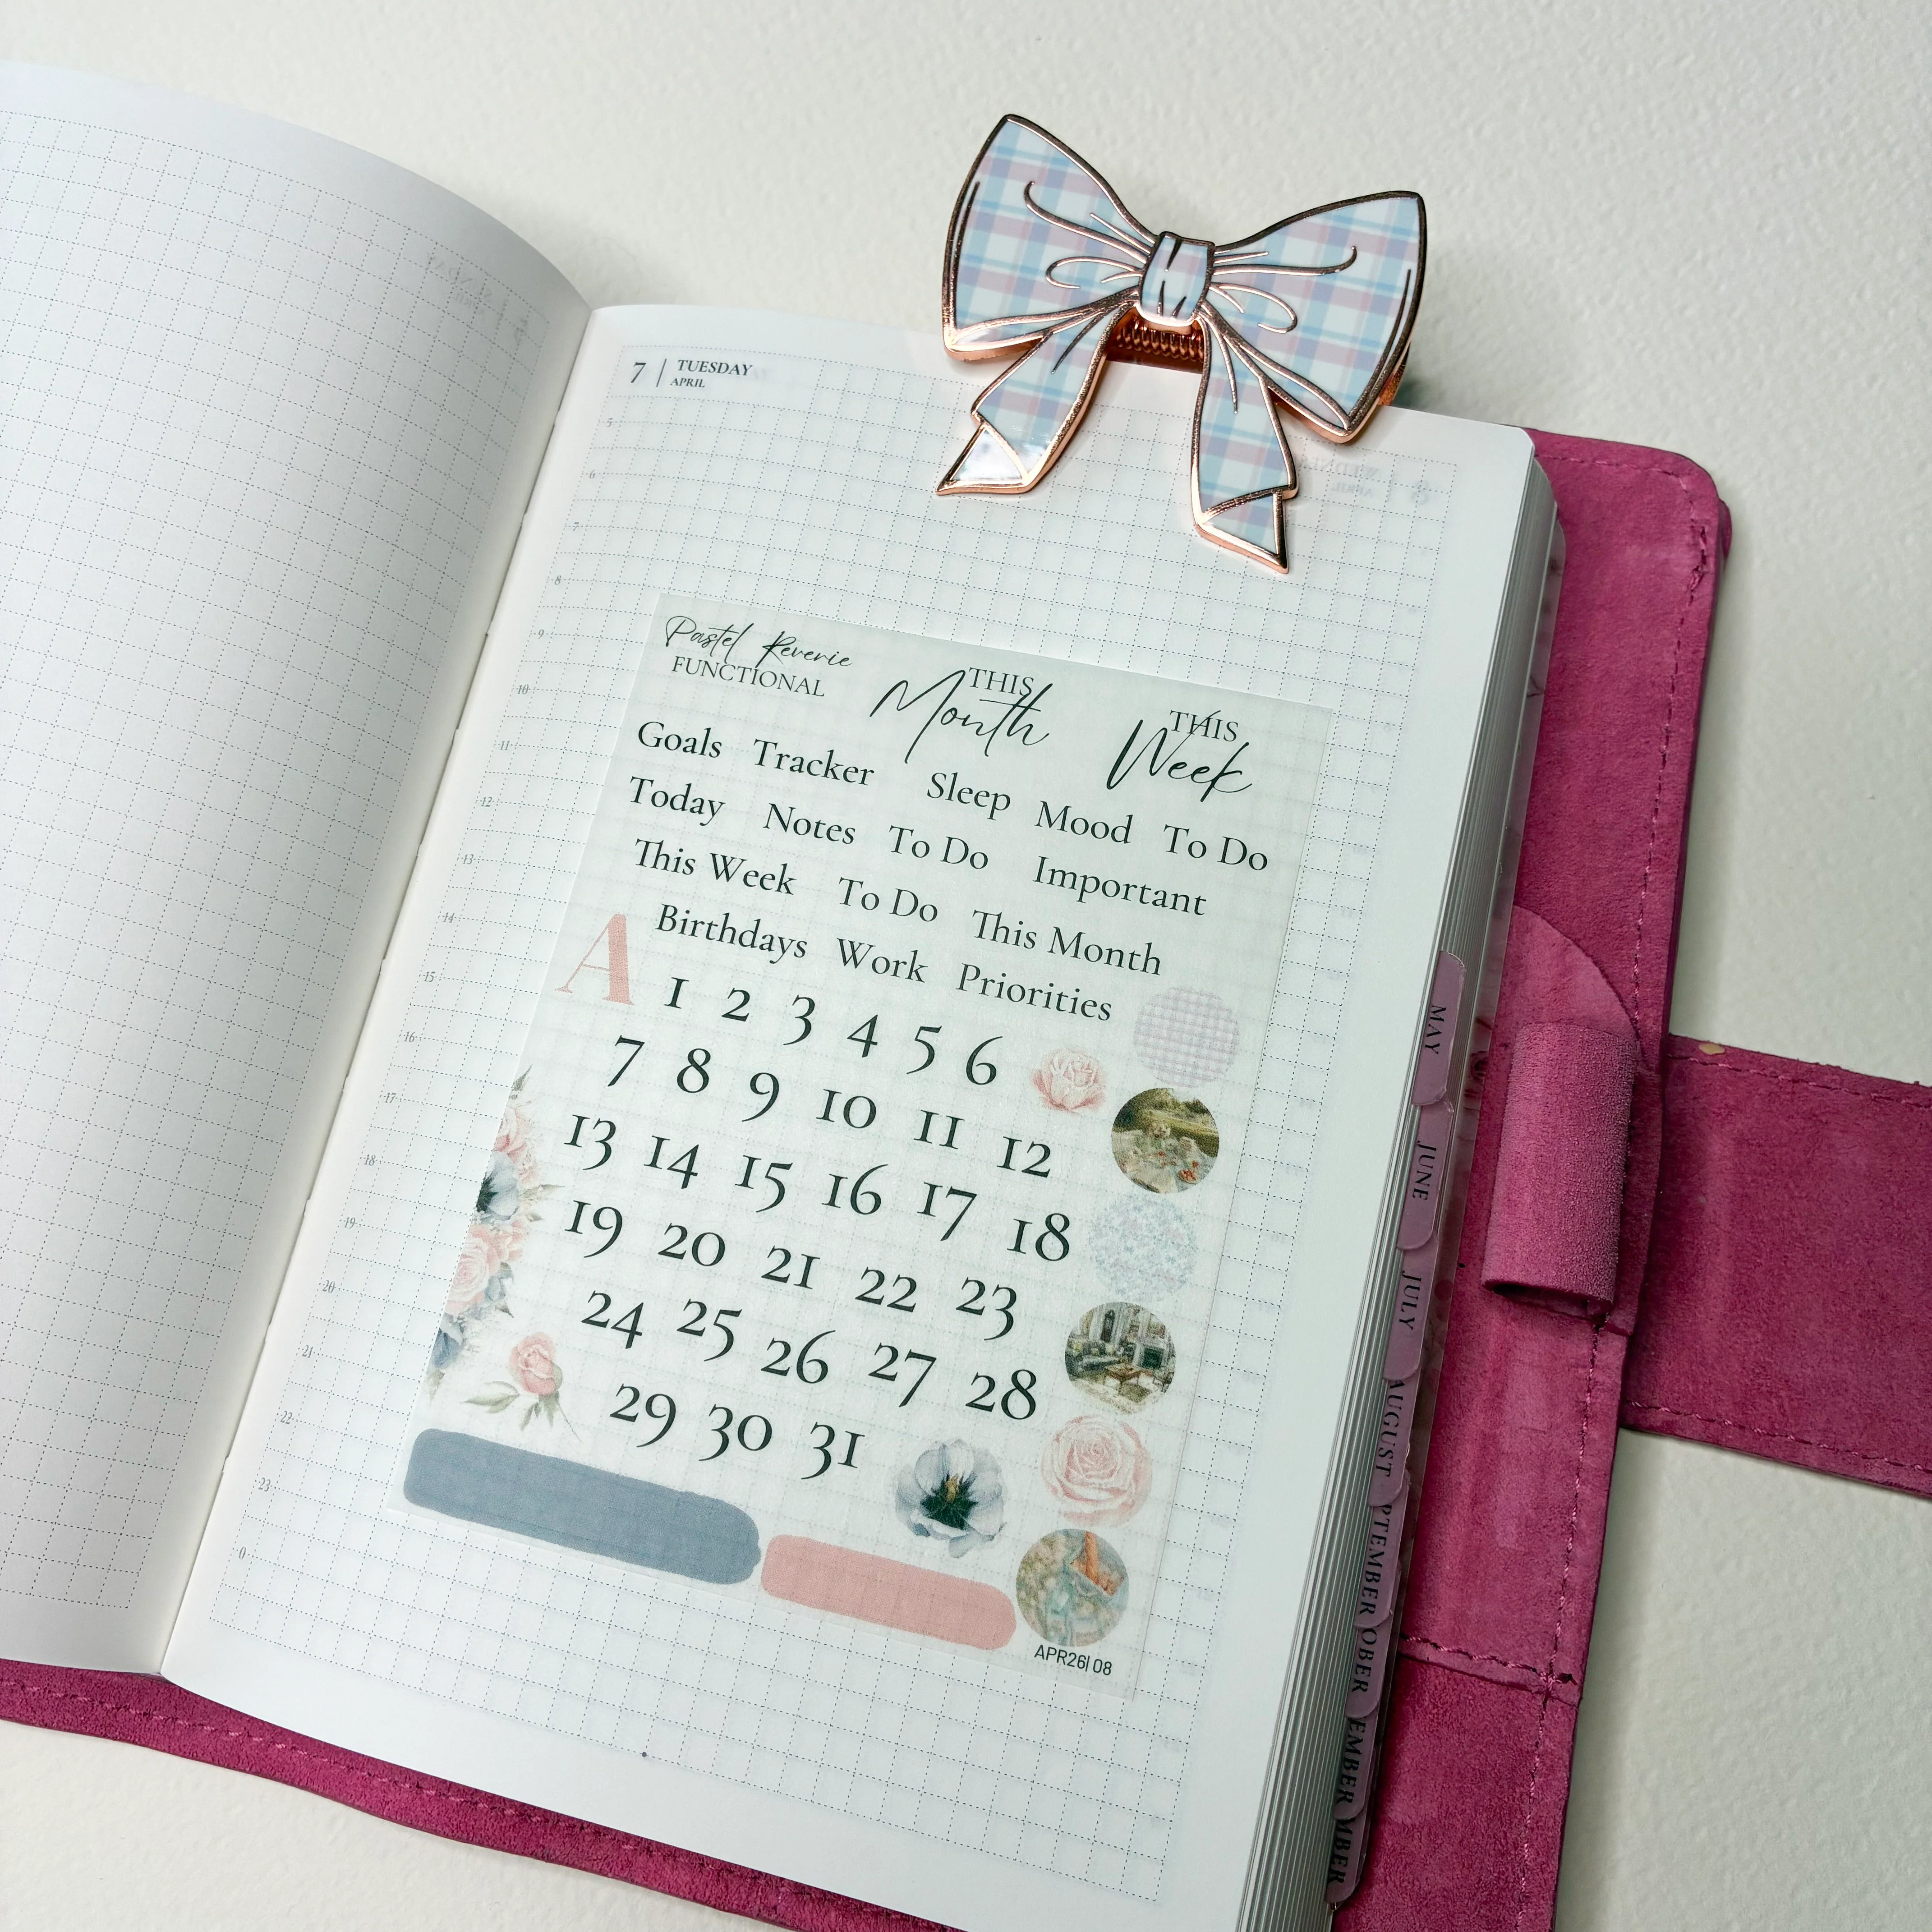 7 | TUESDAY
APRIL
5
6
7
8
9
10
11
12
13
14
15
16
17
18
19
20
21
22
23
0
Pastel Reverie
FUNCTIONAL
THIS
Month
THIS
Week
Goals Tracker Sleep Mood To Do
Today Notes To Do Important
This Week To Do This Month
Birthdays Work Priorities
A
1 2 3 4 5 6
7 8 9 10 11 12
13 14 15 16 17 18
19 20 21 22 23
24 25 26 27 28
29 30 31
APR26| 08
MAY
JUNE
JULY
AUGUST
PTEMBER
OBER
EMBER
MBER